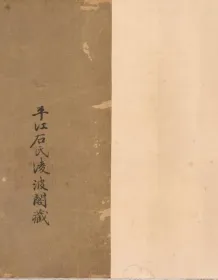 平江石氏凌波閣藏